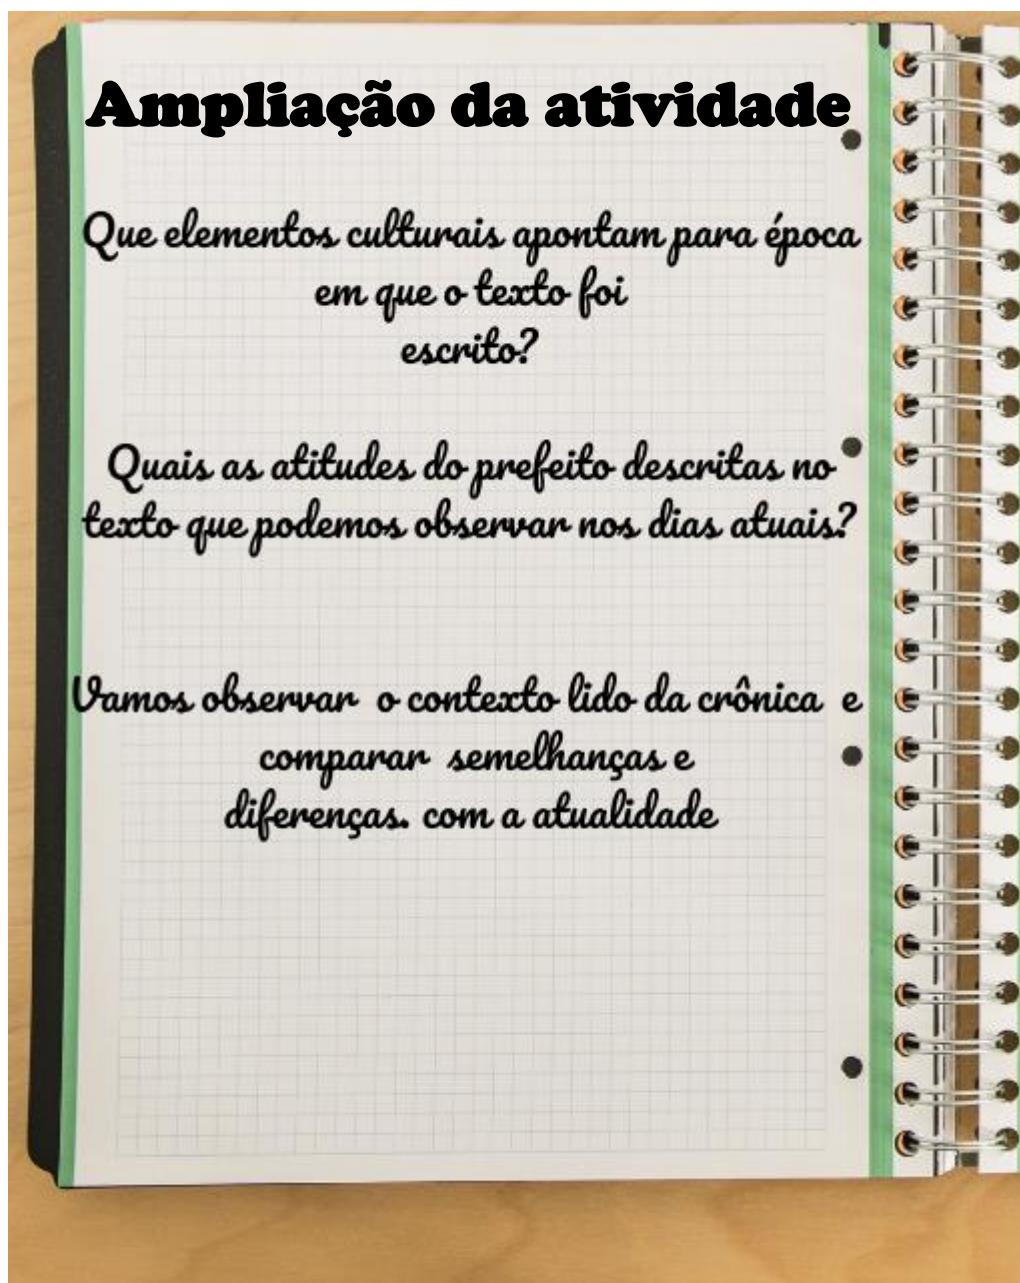 Ampliação da atividade
Que elementos culturais apontam para época
em que o texto foi
escrito?
Quais as atitudes do prefeito descritas no
texto que podemos observar nos dias atuais?
Vamos observar o contexto lido da crônica e
comparar semelhanças e
diferenças. com a atualidade